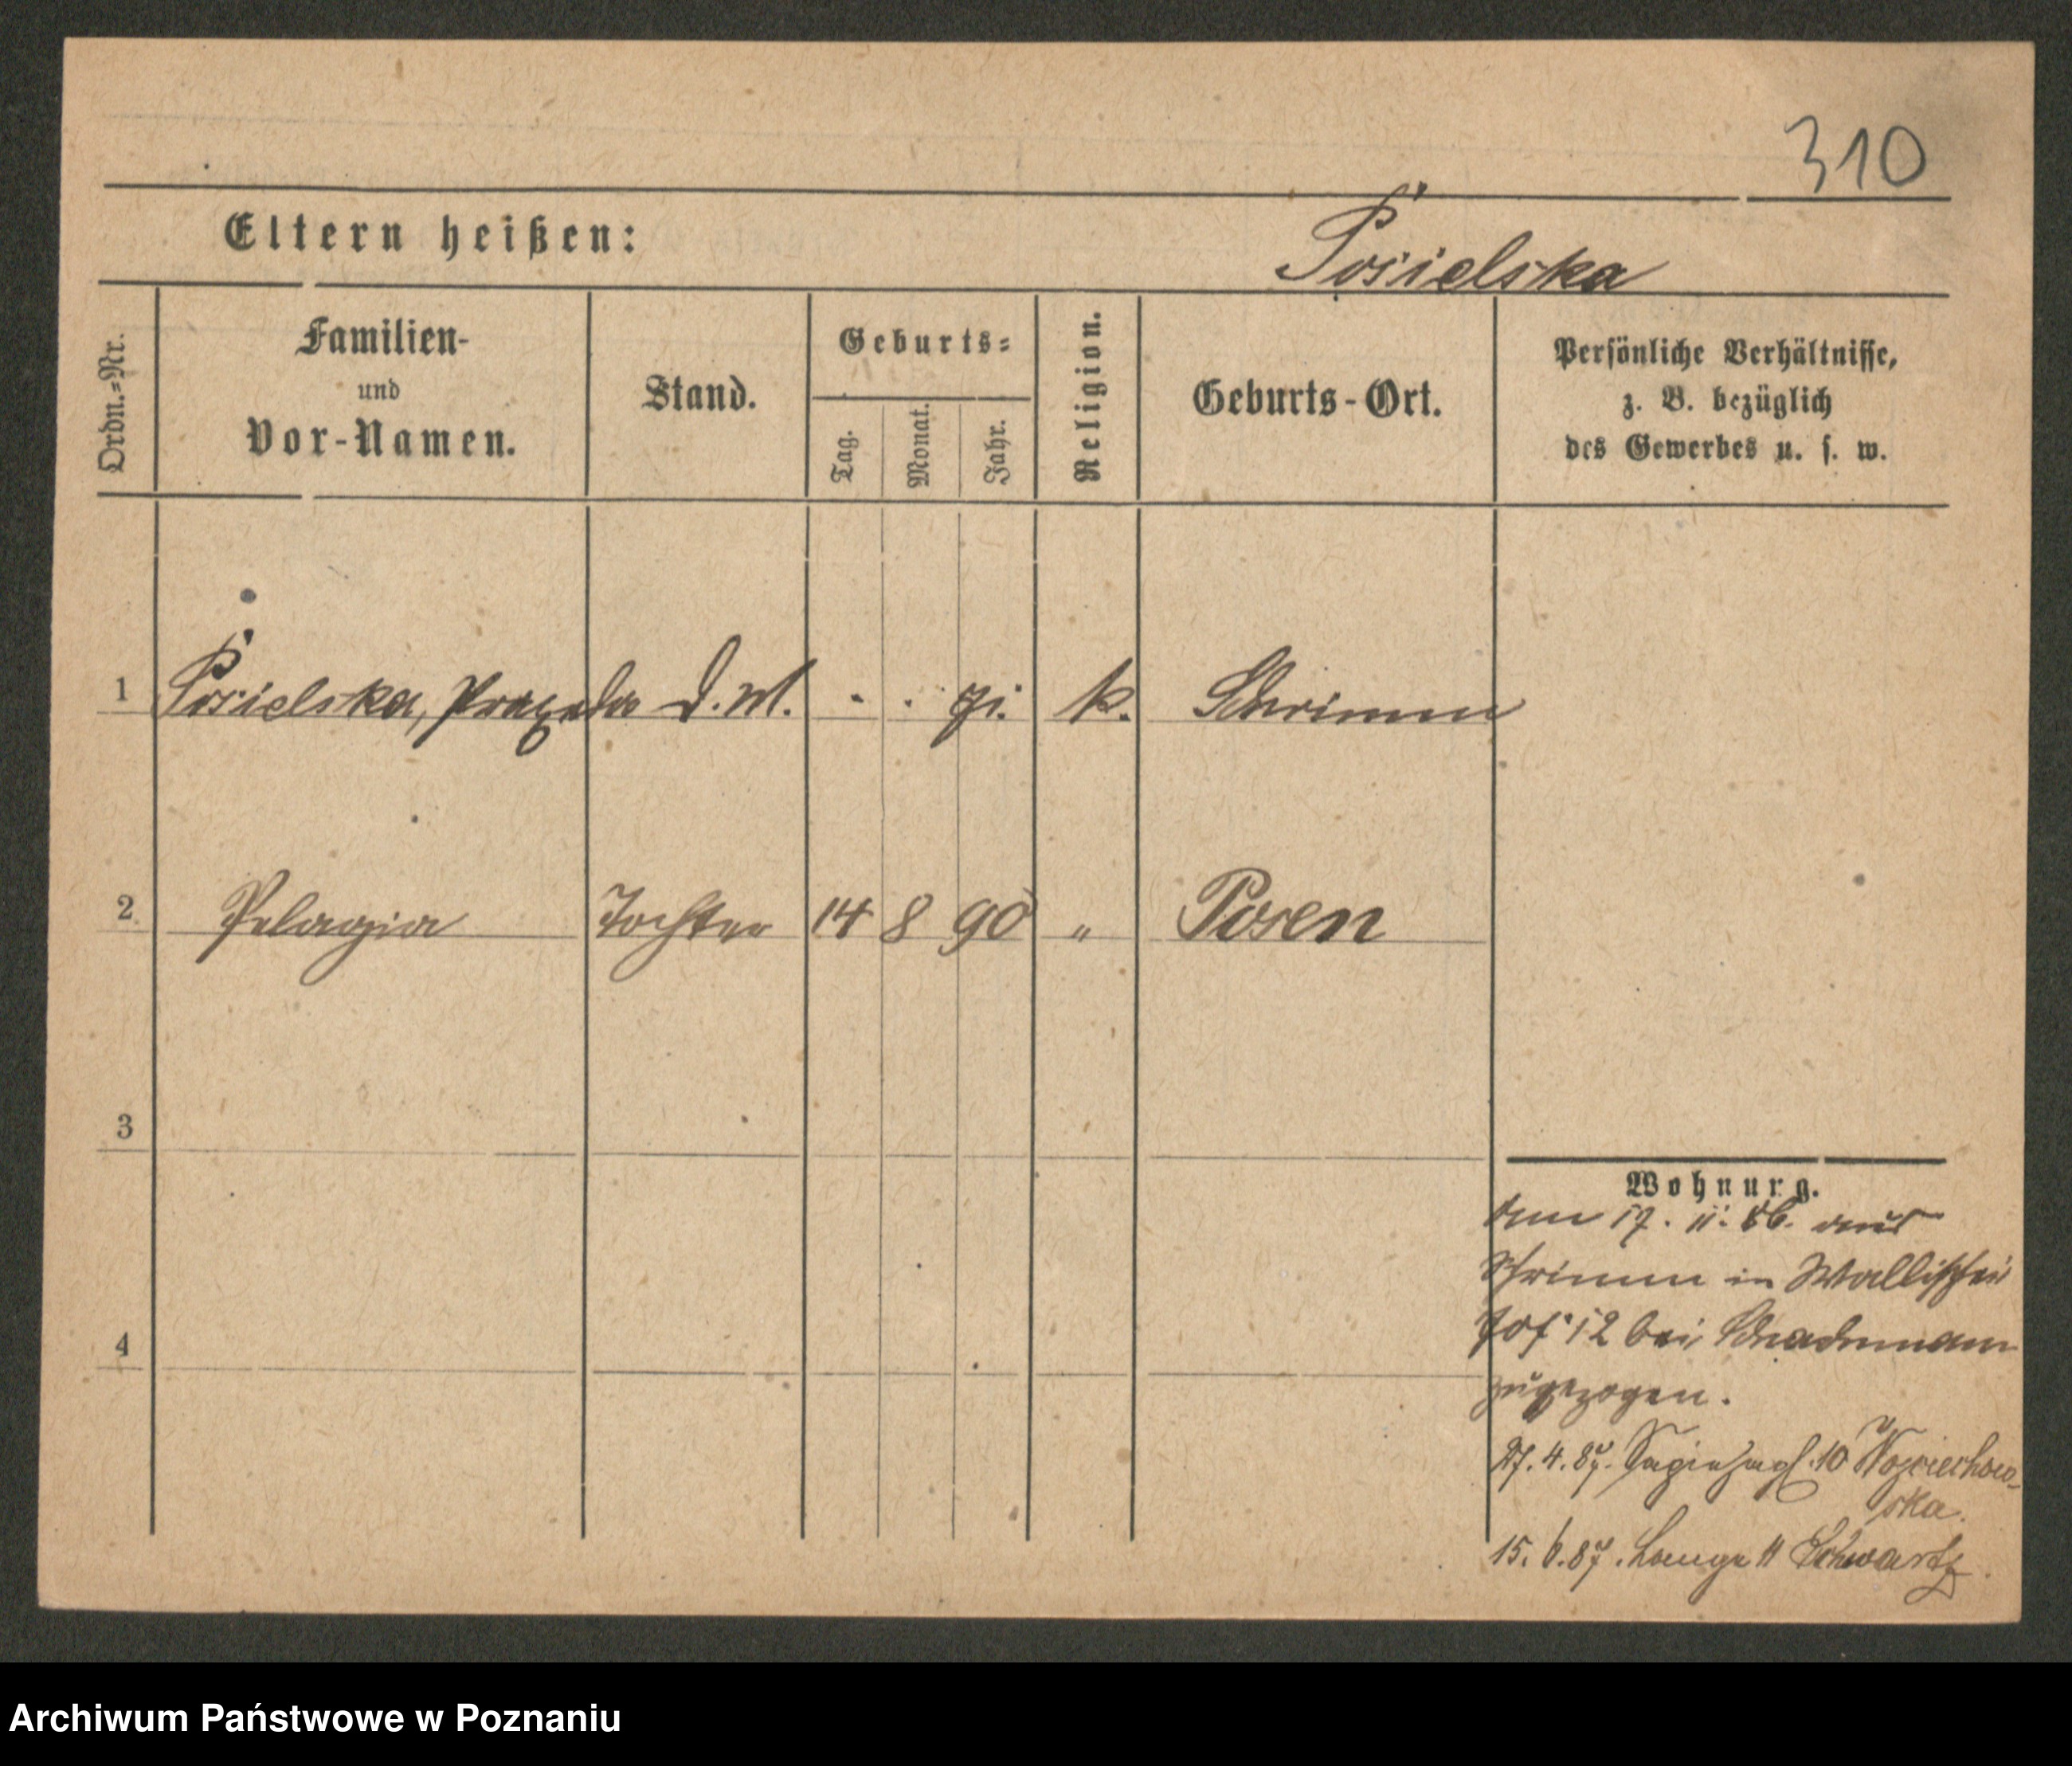 310
Eltern heißen:
Posielska
Ordn.=Nr.
Familien-
und
Vor-Namen.
Stand.
Geburts=
Tag.
Monat.
Jahr.
Religion.
Geburts-Ort.
Persönliche Verhältnisse,
z. B. bezüglich
des Gewerbes u. s. w.
1 Posielska, Praxeda D. M. 71. k. Schrimm
2 Pelagia Tochter 14 8 90 " Posen
3
4
Wohnung.
am 17. 11. 86. aus
Schrimm in Wallischei
12 bei
zugezogen.
27. 4. 87. 10 Wojciechow-
ska.
15. 6. 87. Lange 11 Schwartz
Archiwum Państwowe w Poznaniu